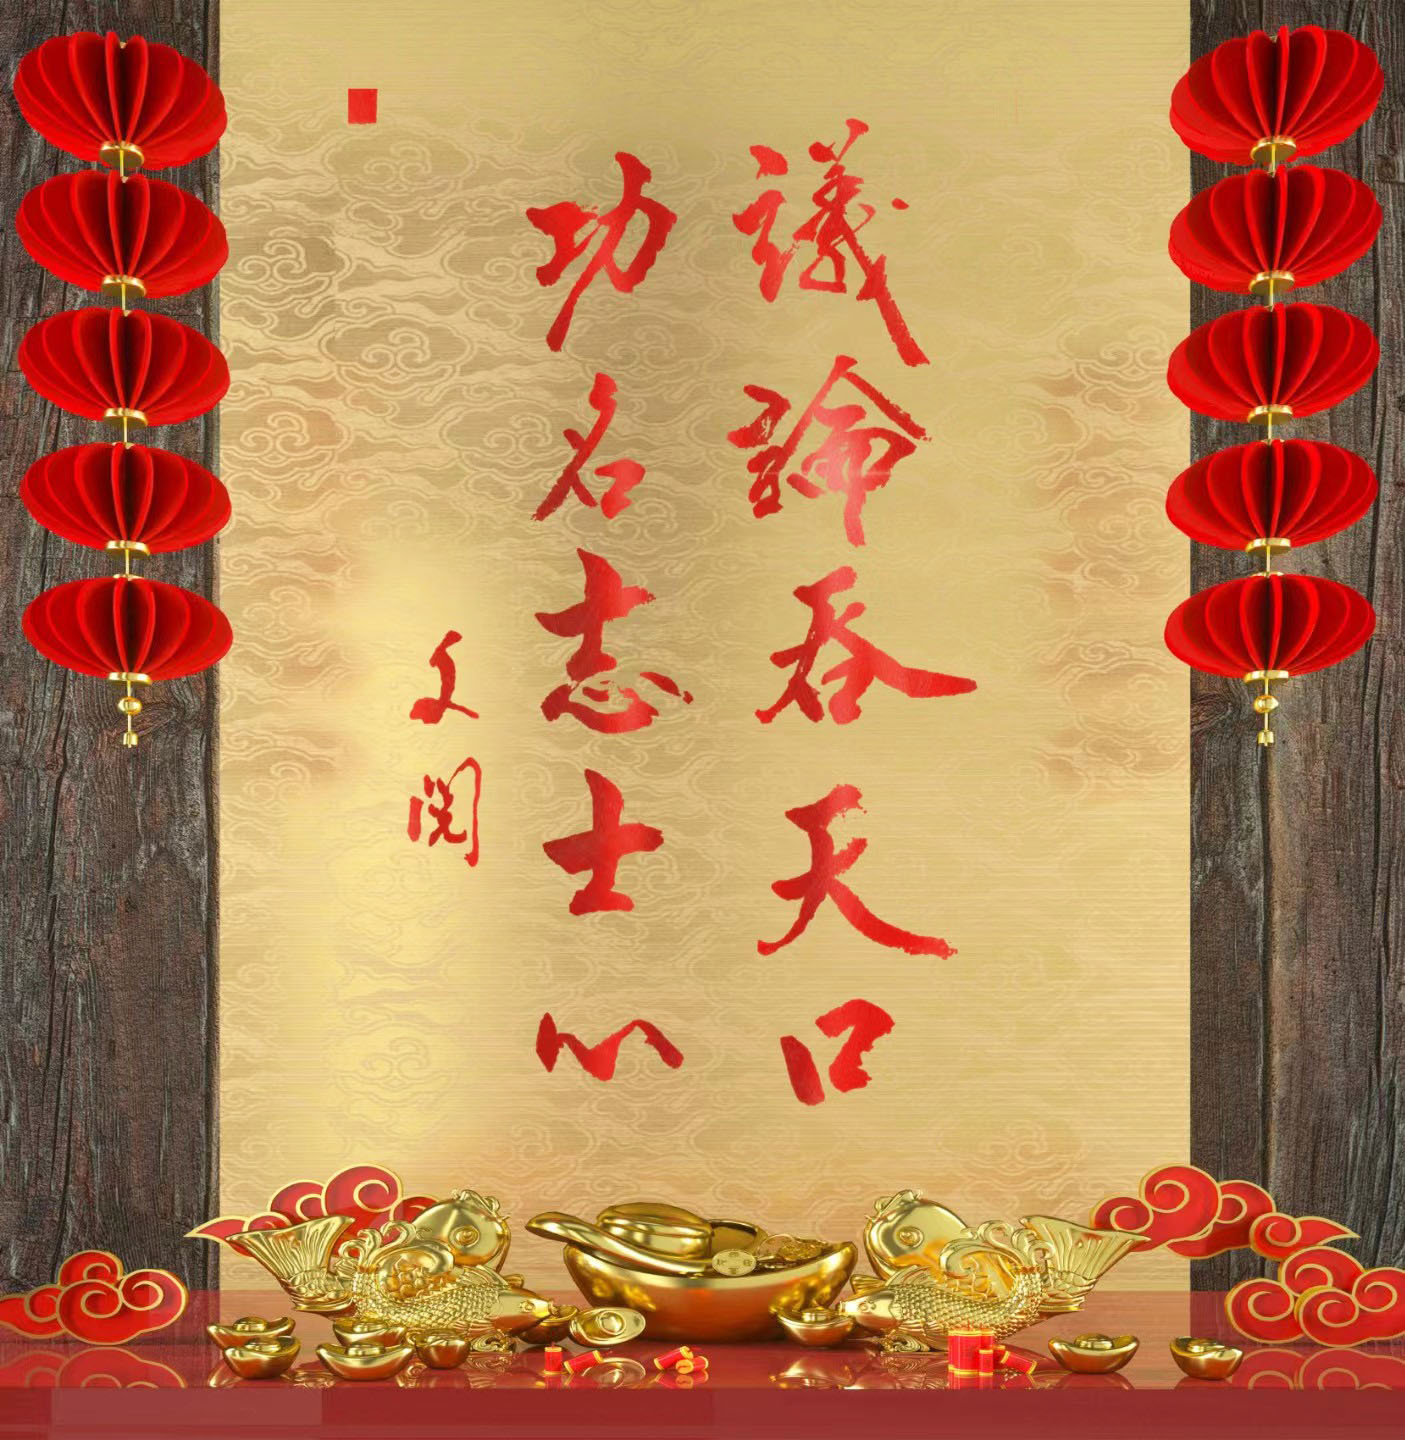 議論吞天口
功名志士心
文閲